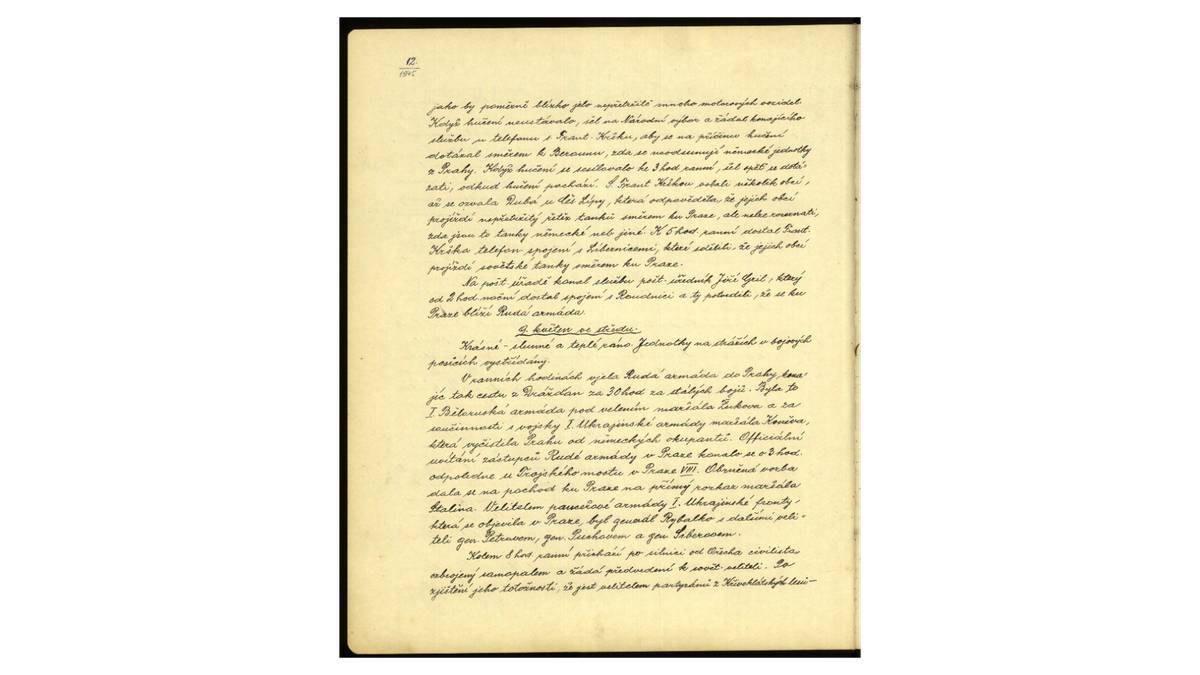 12.
1945
jako by poměrně blízko jelo nepřetržitě mnoho motorových vozidel.
Když hučení neustávalo, šel na Národní výbor a žádal konajícího
službu u telefonu s. Frant. Kršku, aby se na příčinu hučení
dotázal směrem k Berounu, zda se neodsunují německé jednotky
z Prahy. Když hučení se sesilovalo ke 3 hod ranní, šel opět se dotá-
zati, odkud hučení pochází. S. Frant Krškou volali několik obcí,
až se ozvala Dubá u Čes Lípy, která odpověděla, že jejich obcí
projíždí nepřetržitý řetěz tanků směrem ku Praze, ale nelze rozeznati,
zda jsou to tanky německé neb jiné. K 5 hod. ranní dostal Frant.
Krška telefon. spojení s Libernicemi, které sdělili, že jejich obcí
projíždí sovětské tanky směrem ku Praze.
Na pošt. úřadě konal službu pošt. úředník Jiří Gril, který
od 2 hod noční dostal spojení s Roudnicí a ty potvrdili, že se ku
Praze blíží Rudá armáda.
9. květen ve středu.
Krásné - slunné a teplé ráno. Jednotky na strážích v bojových
posicích vystřídány.
V ranních hodinách vjela Rudá armáda do Prahy, kona-
jíc tak cestu z Drážďan za 30 hod za stálých bojů. Byla to
I. Běloruská armáda pod velením maršála Žukova a za
součinnosti s vojsky I. Ukrajinské armády maršála Koněva,
která vyčistila Prahu od německých okupantů. Officiální
uvítání zástupců Rudé armády v Praze konalo se o 3 hod.
odpoledne u Trojského mostu v Praze VIII. Obrněná vozba
dala se na pochod ku Praze na přímý rozkaz maršála
Stalina. Velitelem pancéřové armády I. Ukrajinské fronty,
která se objevila v Praze, byl generál Rybalko s dalšími veli-
teli gen. Petrovem, gen. Puchovem a gen.
Kolem 8 hod ranní přichází po silnici od Ořecha civilista
ozbrojený samopalem a žádá předvedení k sovět. veliteli. Po
zjištění jeho totožnosti, že jest velitelem partyzánů z Křivoklátských lesů-